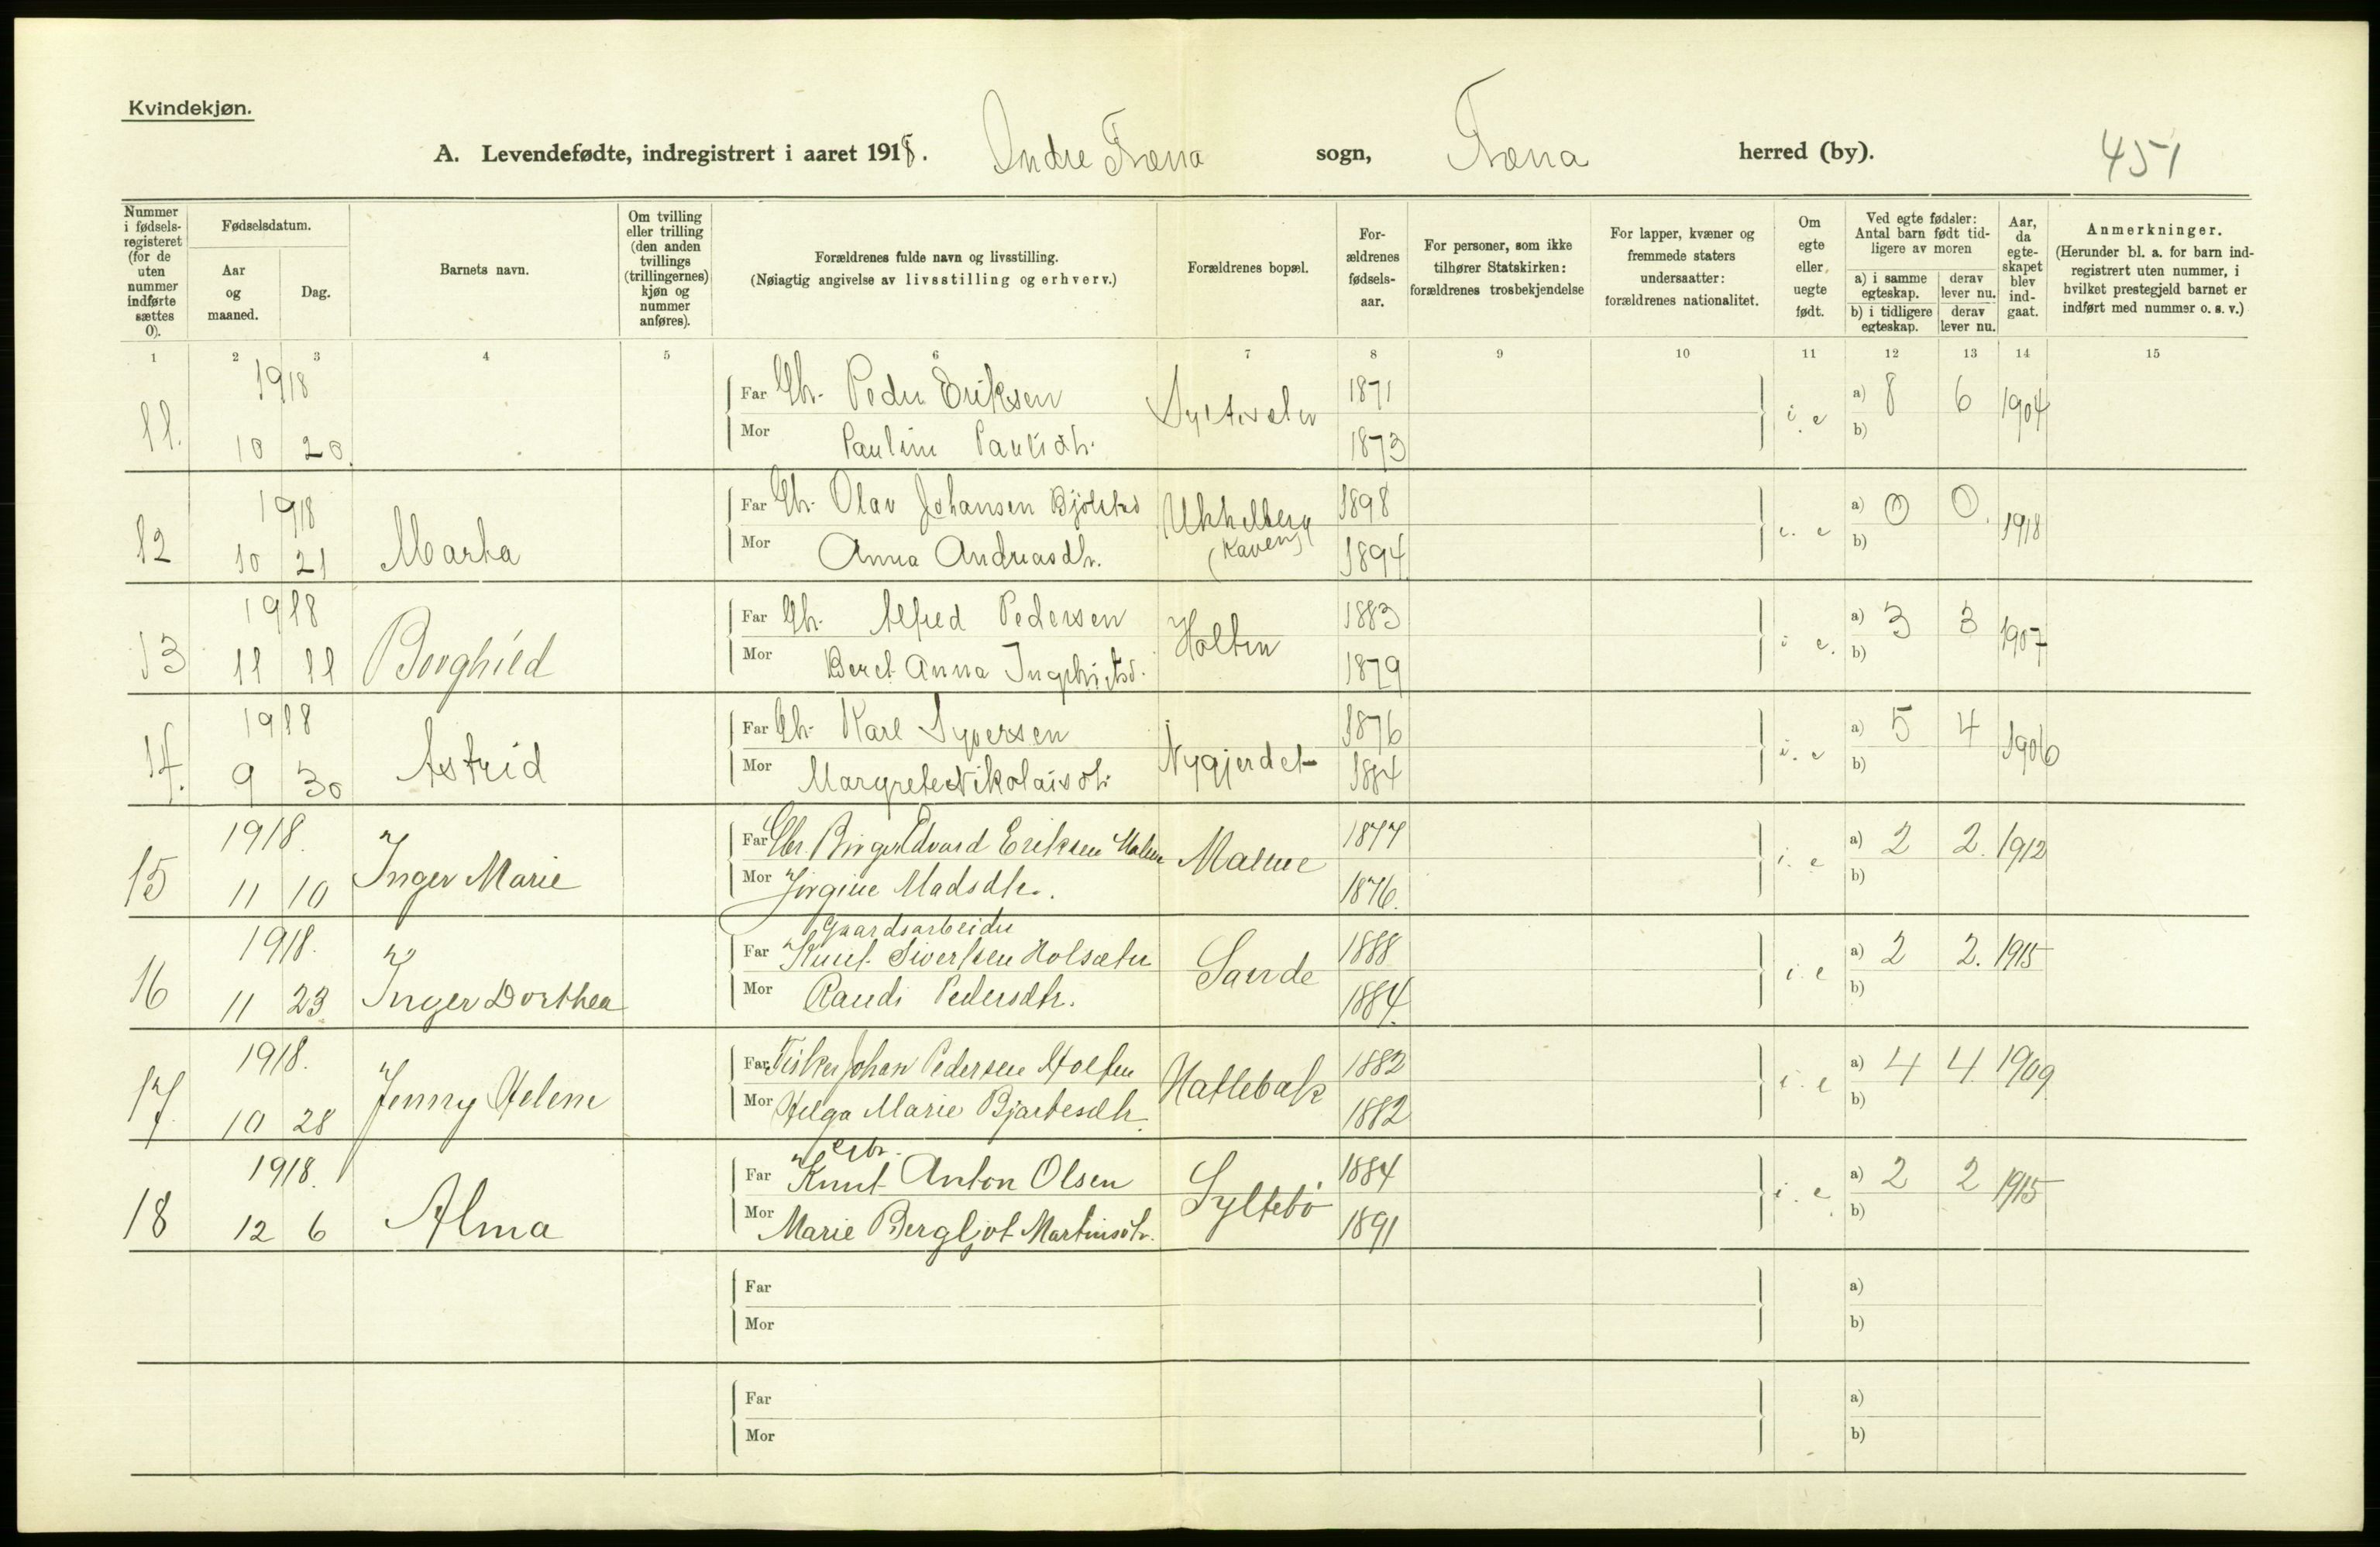 Kvindekjøn.
A. Levendefødte, indregistrert i aaret 1918. Indre Fræna sogn, Fræna herred (by). 451
Nummer i fødsels-registeret (for de uten nummer indførte sættes 0).
Fødselsdatum.
Aar og maaned.
Dag.
Barnets navn.
Om tvilling eller trilling (den anden tvillings (trillingernes) kjøn og nummer anføres).
Forældrenes fulde navn og livsstilling.
(Nøiagtig angivelse av livsstilling og erhverv.)
Forældrenes bopæl.
For-ældrenes fødsels-aar.
For personer, som ikke tilhører Statskirken: forældrenes trosbekjendelse
For lapper, kvæner og fremmede staters undersaatter: forældrenes nationalitet.
Om egte eller uegte født.
Ved egte fødsler: Antal barn født tid-ligere av moren
a) i samme egteskap.
derav lever nu.
b) i tidligere egteskap.
derav lever nu.
Aar, da egte-skapet blev ind-gaat.
Anmerkninger.
(Herunder bl. a. for barn ind-registrert uten nummer, i hvilket prestegjeld barnet er indført med nummer o. s. v.)
1 2 3 4 5 6 7 8 9 10 11 12 13 14 15
1918 Far Gbr. Peder Eriksen 1871 a) 8 6 1904
11. 10 20. Mor Pauline Paulsdtr. Syltesæter 1873 i. e b)
1918 Far Gbr. Olav Johansen 1898 a) 0 0. 1918
12 10 21 Marta Mor Anna Andreasdtr. 1894 e. e b)
1918 Far Gbr. Alfred Pedersen 1883 a) 3 3 1907
13 11 11 Borghild Mor Beret Anna Holten 1879 i e. b)
1918 Far Gbr. Karl Syversen 1876 a) 5 4 1906
14. 9 30 Astrid Mor Margrete Nikolaisdtr. Nygjerdet 1884 i. e b)
1918. Far Gbr. Birger Edvard Eriksen Malme 1877 a) 2 2. 1912
15 11 10 Inger Marie Mor Jørgine Madsdtr. Malme 1876. i. e b)
Gaardsarbeider
1918. Far Knut Sivertsen Holsæter 1888 a) 2 2. 1915
16 11 23. Inger Dorthea Mor Randi Pedersdtr. Sande 1884. i. e b)
1918. Far Fisker Johan Pedersen Holten 1882 a) 4 4 1909
17. 10 28 Jenny Helene Mor Helga Marie Bjartesdtr. Hatlebak 1882 i. e b)
Gbr.
1918. Far Knut Anton Olsen 1884 a) 2 2 1915
18 12 6 Alma Mor Marie Bergljot Martinsdtr. Syltebø 1891 i. e b)
Far a)
Mor b)
Far a)
Mor b)